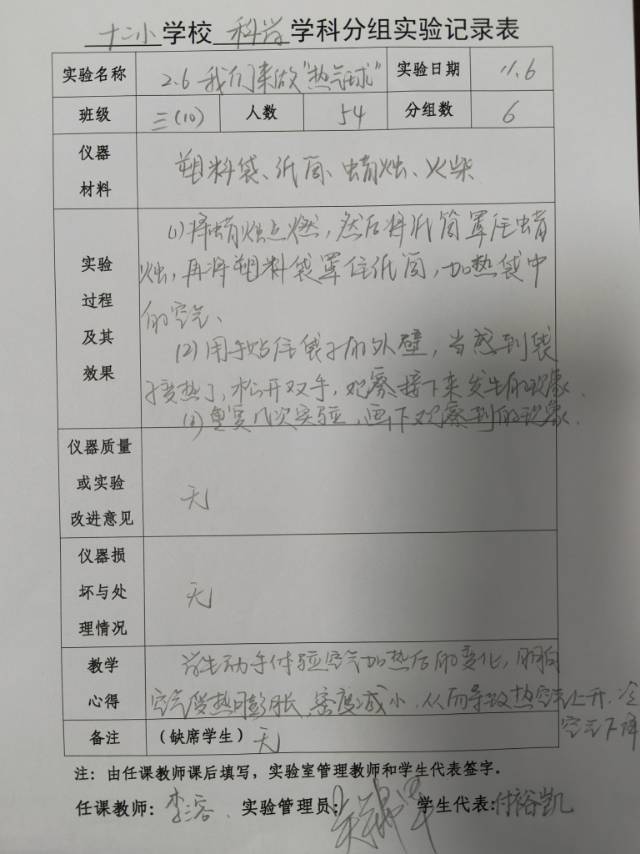 十二小学校 科学学科分组实验记录表
实验名称 2.6 我们来做"热气球" 实验日期 11.6
班级 三(10) 人数 54 分组数 6
仪器
材料
塑料袋、纸筒、蜡烛、火柴
实验
过程
及其
效果
(1)将蜡烛点燃,然后将纸筒罩住蜡
烛,再将塑料袋罩住纸筒,加热袋中
的空气、
(2)用手贴住袋子的外壁,当感到袋
子变热了,松开双手,观察接下来发生的现象.
(3)重复几次实验,画下观察到的现象.
仪器质量
或实验
改进意见
无
仪器损
坏与处
理情况
无
教学
心得
学生动手体验空气加热后的变化,明白
空气受热膨胀、密度减小、从而导致热空气上升、冷
空气下降
备注 (缺席学生) 无
注:由任课教师课后填写,实验室管理教师和学生代表签字。
任课教师:李溶 实验管理员: 学生代表:付裕凯